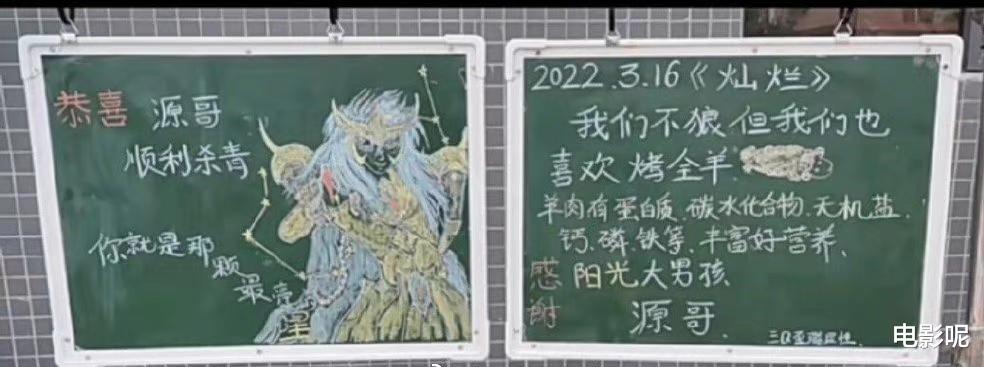 恭喜 源哥
顺利杀青
你就是那
颗
最亮
星
2022.3.16《灿烂》
我们不狼但我们也
喜欢烤全羊
羊肉有蛋白质.碳水化合物.无机盐.
钙.磷.铁等.丰富好营养、
感 阳光大男孩
谢 源哥.
电影呢